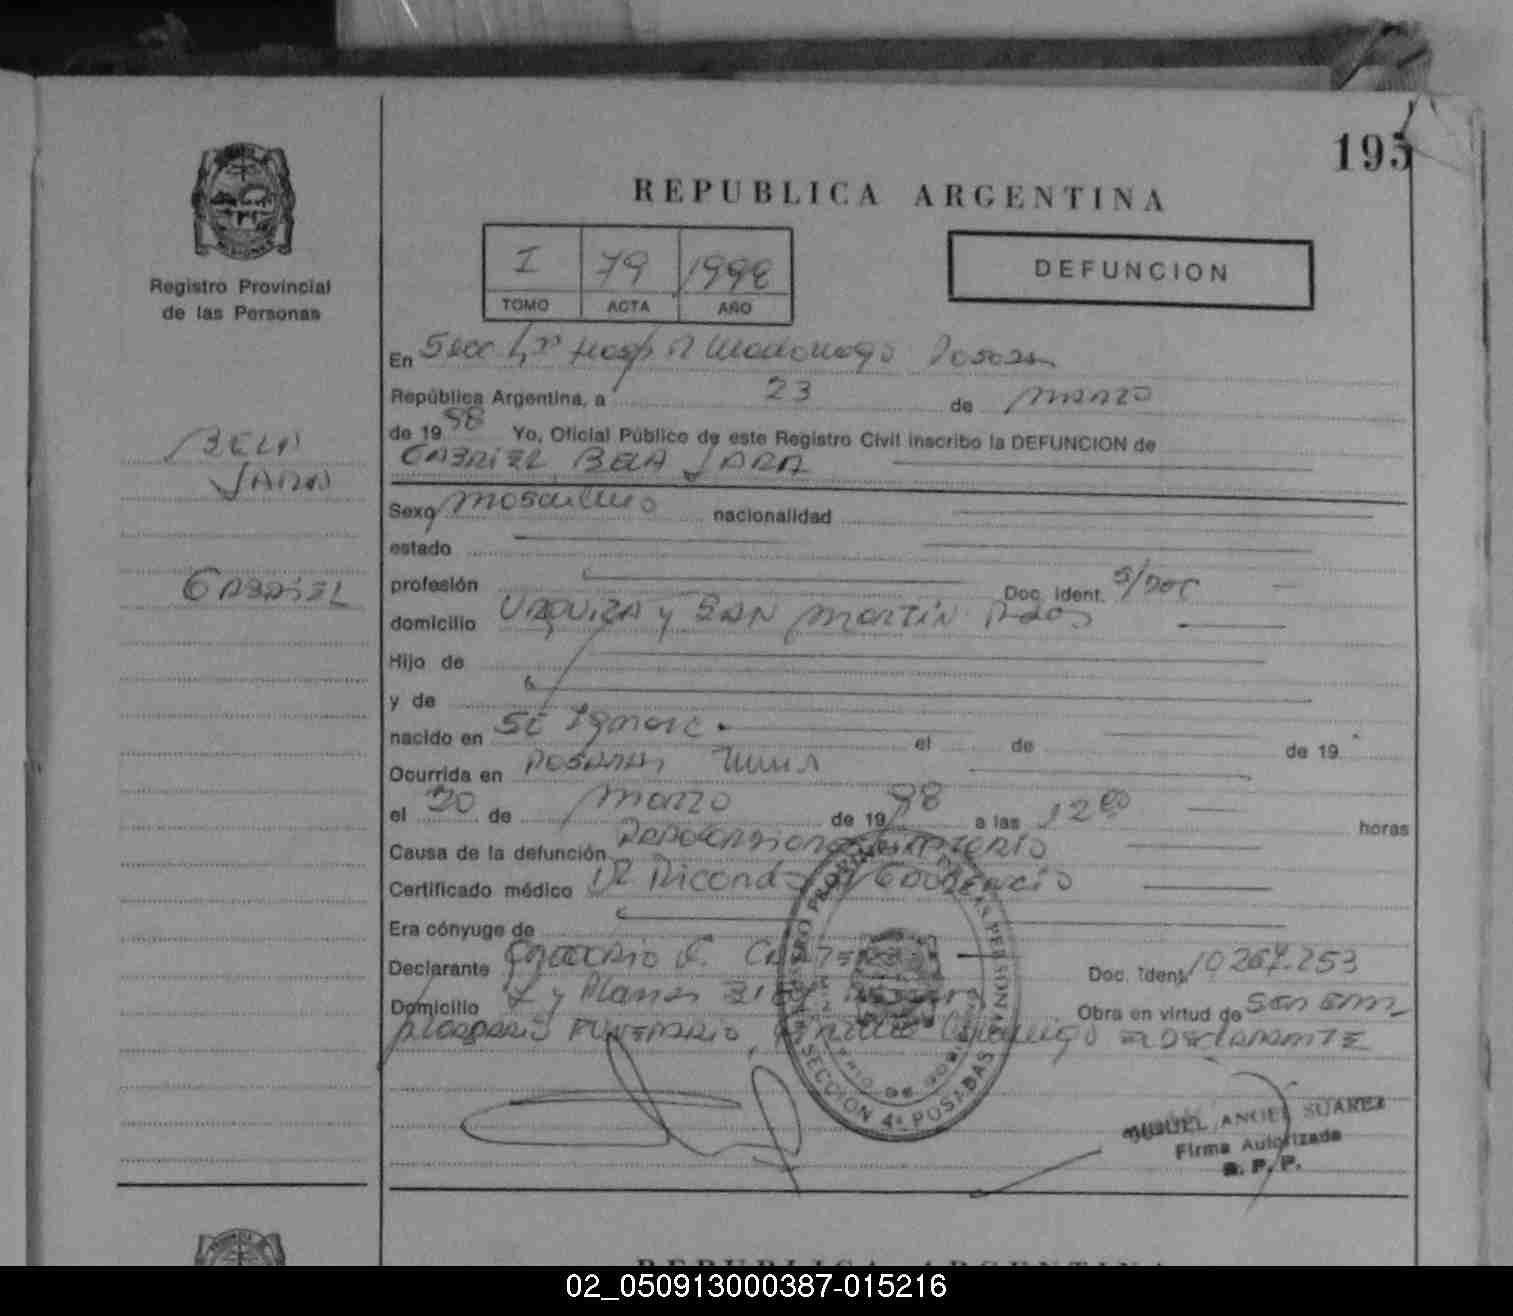 195
REPUBLICA ARGENTINA
I 79 1998
TOMO ACTA AÑO
DEFUNCION
Registro Provincial
de las Personas
En Secc 4ta Hosp R Madariaga Posadas
República Argentina, a 23 de marzo
de 1998 Yo, Oficial Público de este Registro Civil inscribo la DEFUNCION de
GABRIEL BELA JARA
BELA
JARA
GABRIEL
Sexo masculino nacionalidad
estado
profesión Doc. Ident. S/Doc
domicilio URQUIZA y SAN MARTIN Pdas
Hijo de
y de
nacido en Se Ignora el de de 19
Ocurrida en POSADAS
el 20 de marzo de 1998 a las 12 00 horas
Causa de la defunción
Certificado médico Dr
Era cónyuge de
Declarante GREGORIO Doc. Ident. 10267.253
Domicilio Obra en virtud de
FUNERARIO, conmigo EL DECLARANTE
REGISTRO PROVINCIAL DE LAS PERSONAS
MINISTERIO DE GOBIERNO
SECCION 4ª POSADAS
MIGUEL ANGEL SUAREZ
Firma Autorizada
R. P. P.
REPUBLICA ARGENTINA
02_050913000387-015216